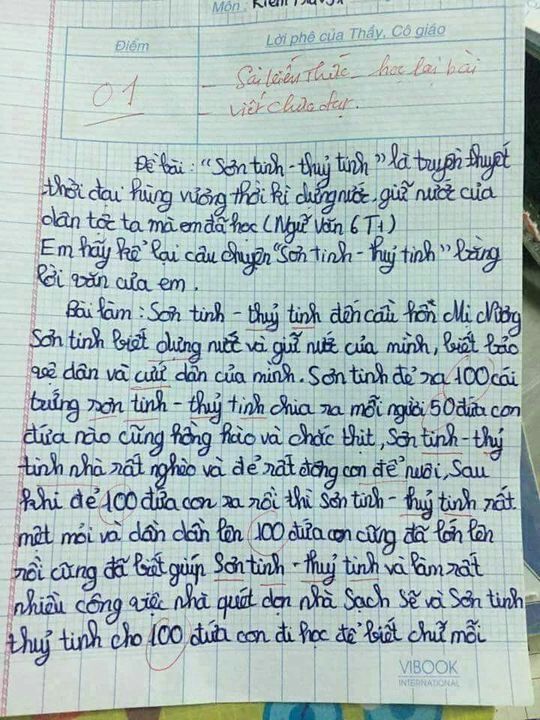 Môn :
Điểm
Lời phê của Thầy, Cô giáo
01
- Sai kiến thức - học lại bài
- viết chưa đạt.
Đề bài : "Sơn tinh - thuỷ tinh" là truyền thuyết
thời đại hùng vương thời kì dựng nước, giữ nước của
dân tộc ta mà em đã học (Ngữ văn 6 T1)
Em hãy kể lại câu chuyện "Sơn tinh - thuỷ tinh" bằng
lời văn của em.
Bài làm : Sơn tinh - thuỷ tinh đến cầu hôn Mị Nương
Sơn tinh biết dựng nước và giữ nước của mình, biết bảo
vệ dân và cứu dân của mình. Sơn tinh đẻ ra 100 cái
trứng sơn tinh - thuỷ tinh chia ra mỗi người 50 đứa con
đứa nào cũng hồng hào và chắc thịt, Sơn tinh - thuỷ
tinh nhà rất nghèo và đẻ rất đông con để nuôi, Sau
khi đẻ 100 đứa con ra rồi thì Sơn tinh - thuỷ tinh rất
mệt mỏi và dần dần lên 100 đứa con cũng đã lớn lên
rồi cũng đã biết giúp Sơn tinh - thuỷ tinh và làm rất
nhiều công việc nhà quét dọn nhà Sạch sẽ và Sơn tinh
thuỷ tinh cho 100 đứa con đi học để biết chữ mỗi
VIBOOK
INTERNATIONAL